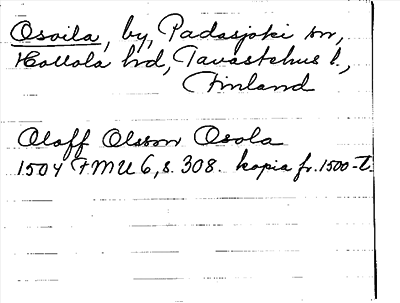 Osoila, by, Padasjoki sn,
Hollola hd, Tavastehus l.,
Finland
Oloff Olsson Osola
1504 FMU 6, s. 308. kopia fr. 1500-t.